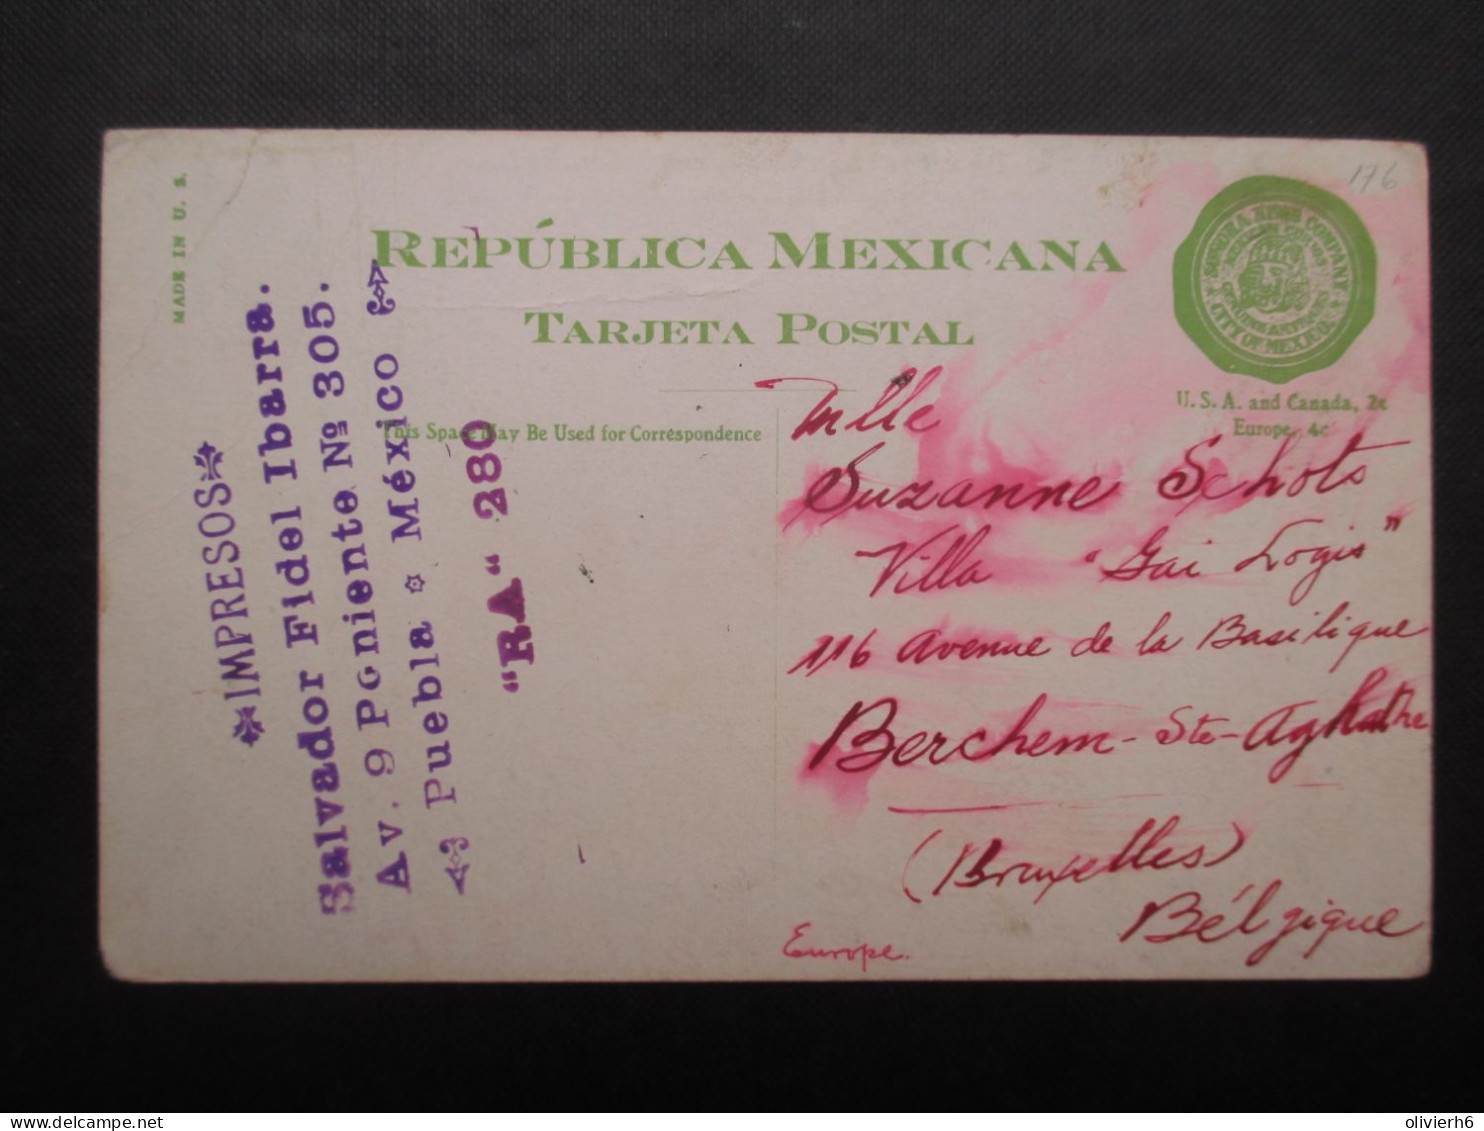 176
MADE IN U. S.
REPÚBLICA MEXICANA
TARJETA POSTAL
SONORA NEWS COMPANY
CITY OF MEXICO
U. S. A. and Canada, 2c
Europe, 4c
This Space May Be Used for Correspondence
IMPRESOS
Salvador Fidel Ibarra.
Av. 9 Poniente No 305.
Puebla México
"RA" 280
Mlle
Suzanne Schots
Villa "Gai Logis"
116 Avenue de la Basilique
Berchem-Ste-Aghathe
(Bruxelles)
Bélgique
Europe.
olivierh6